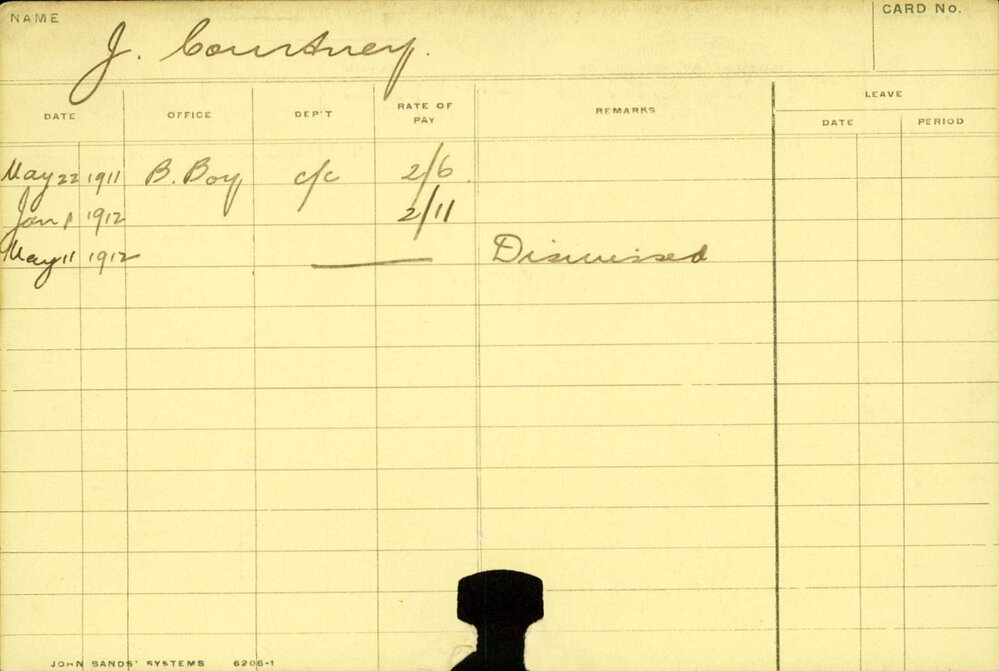 NAME
CARD No.
J. Courtney.
LEAVE
DATE OFFICE DEP'T RATE OF PAY REMARKS DATE PERIOD
May 22 1911 B. Boy c/c 2/6.
Jan 1 1912 2/11
May 11 1912 — Dismissed
JOHN SANDS' SYSTEMS 6206-1